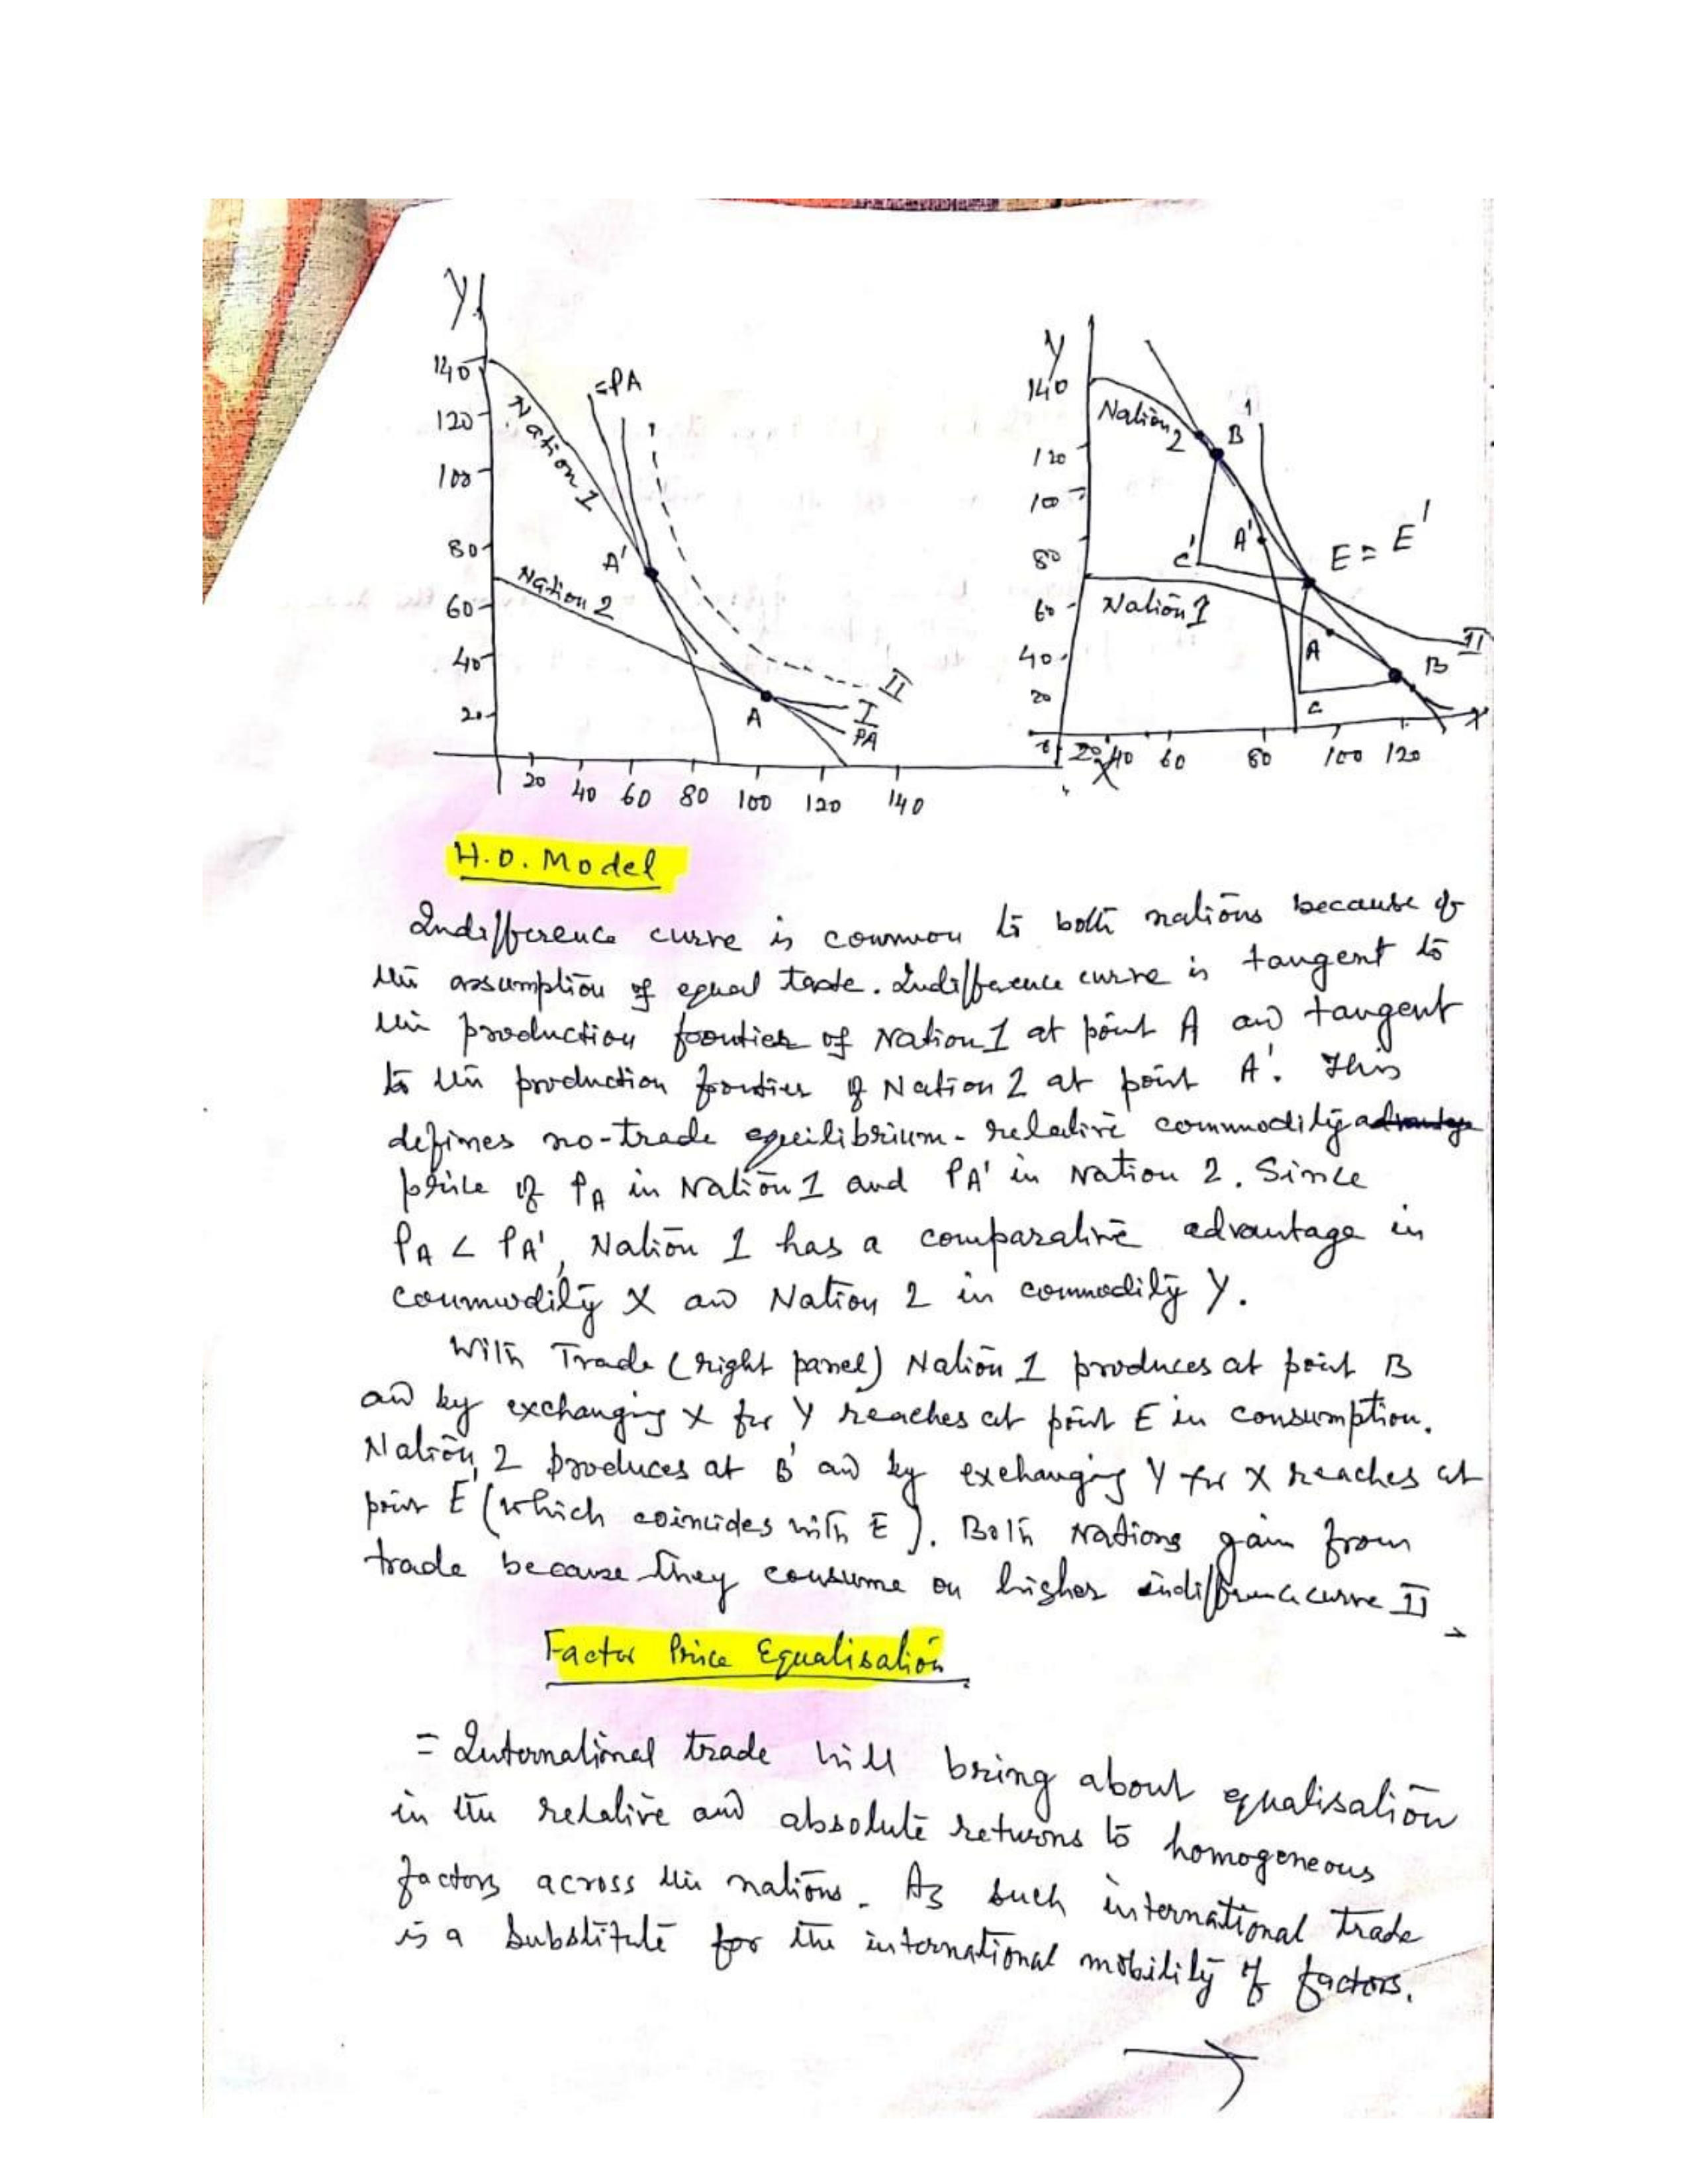 Y
140
120
100
80
60
40
20
=PA
Nation 1
A'
Nation 2
A
II
I
PA
20 40 60 80 100 120 140
X
Y
140
120
100
80
60
40
20
Nation 2
B
1
C'
A'
E = E'
Nation 1
A
B
II
C
X
20 40 60 80 100 120
H.O. Model
Indifference curve is common to both nations because of
the assumption of equal taste. Indifference curve is tangent to
the production frontier of Nation 1 at point A and tangent
to the production frontier of Nation 2 at point A'. This
defines no-trade equilibrium - relative commodity advantage
price of PA in Nation 1 and PA' in Nation 2. Since
PA < PA', Nation 1 has a comparative advantage in
commodity X and Nation 2 in commodity Y.
With Trade (right panel) Nation 1 produces at point B
and by exchanging X for Y reaches at point E in consumption.
Nation 2 produces at B' and by exchanging Y for X reaches at
point E' (which coincides with E). Both Nations gain from
trade because they consume on higher indifference curve II
Factor Price Equalisation
= International trade will bring about equalisation
in the relative and absolute returns to homogeneous
factors across the nations. As such international trade
is a substitute for the international mobility of factors.